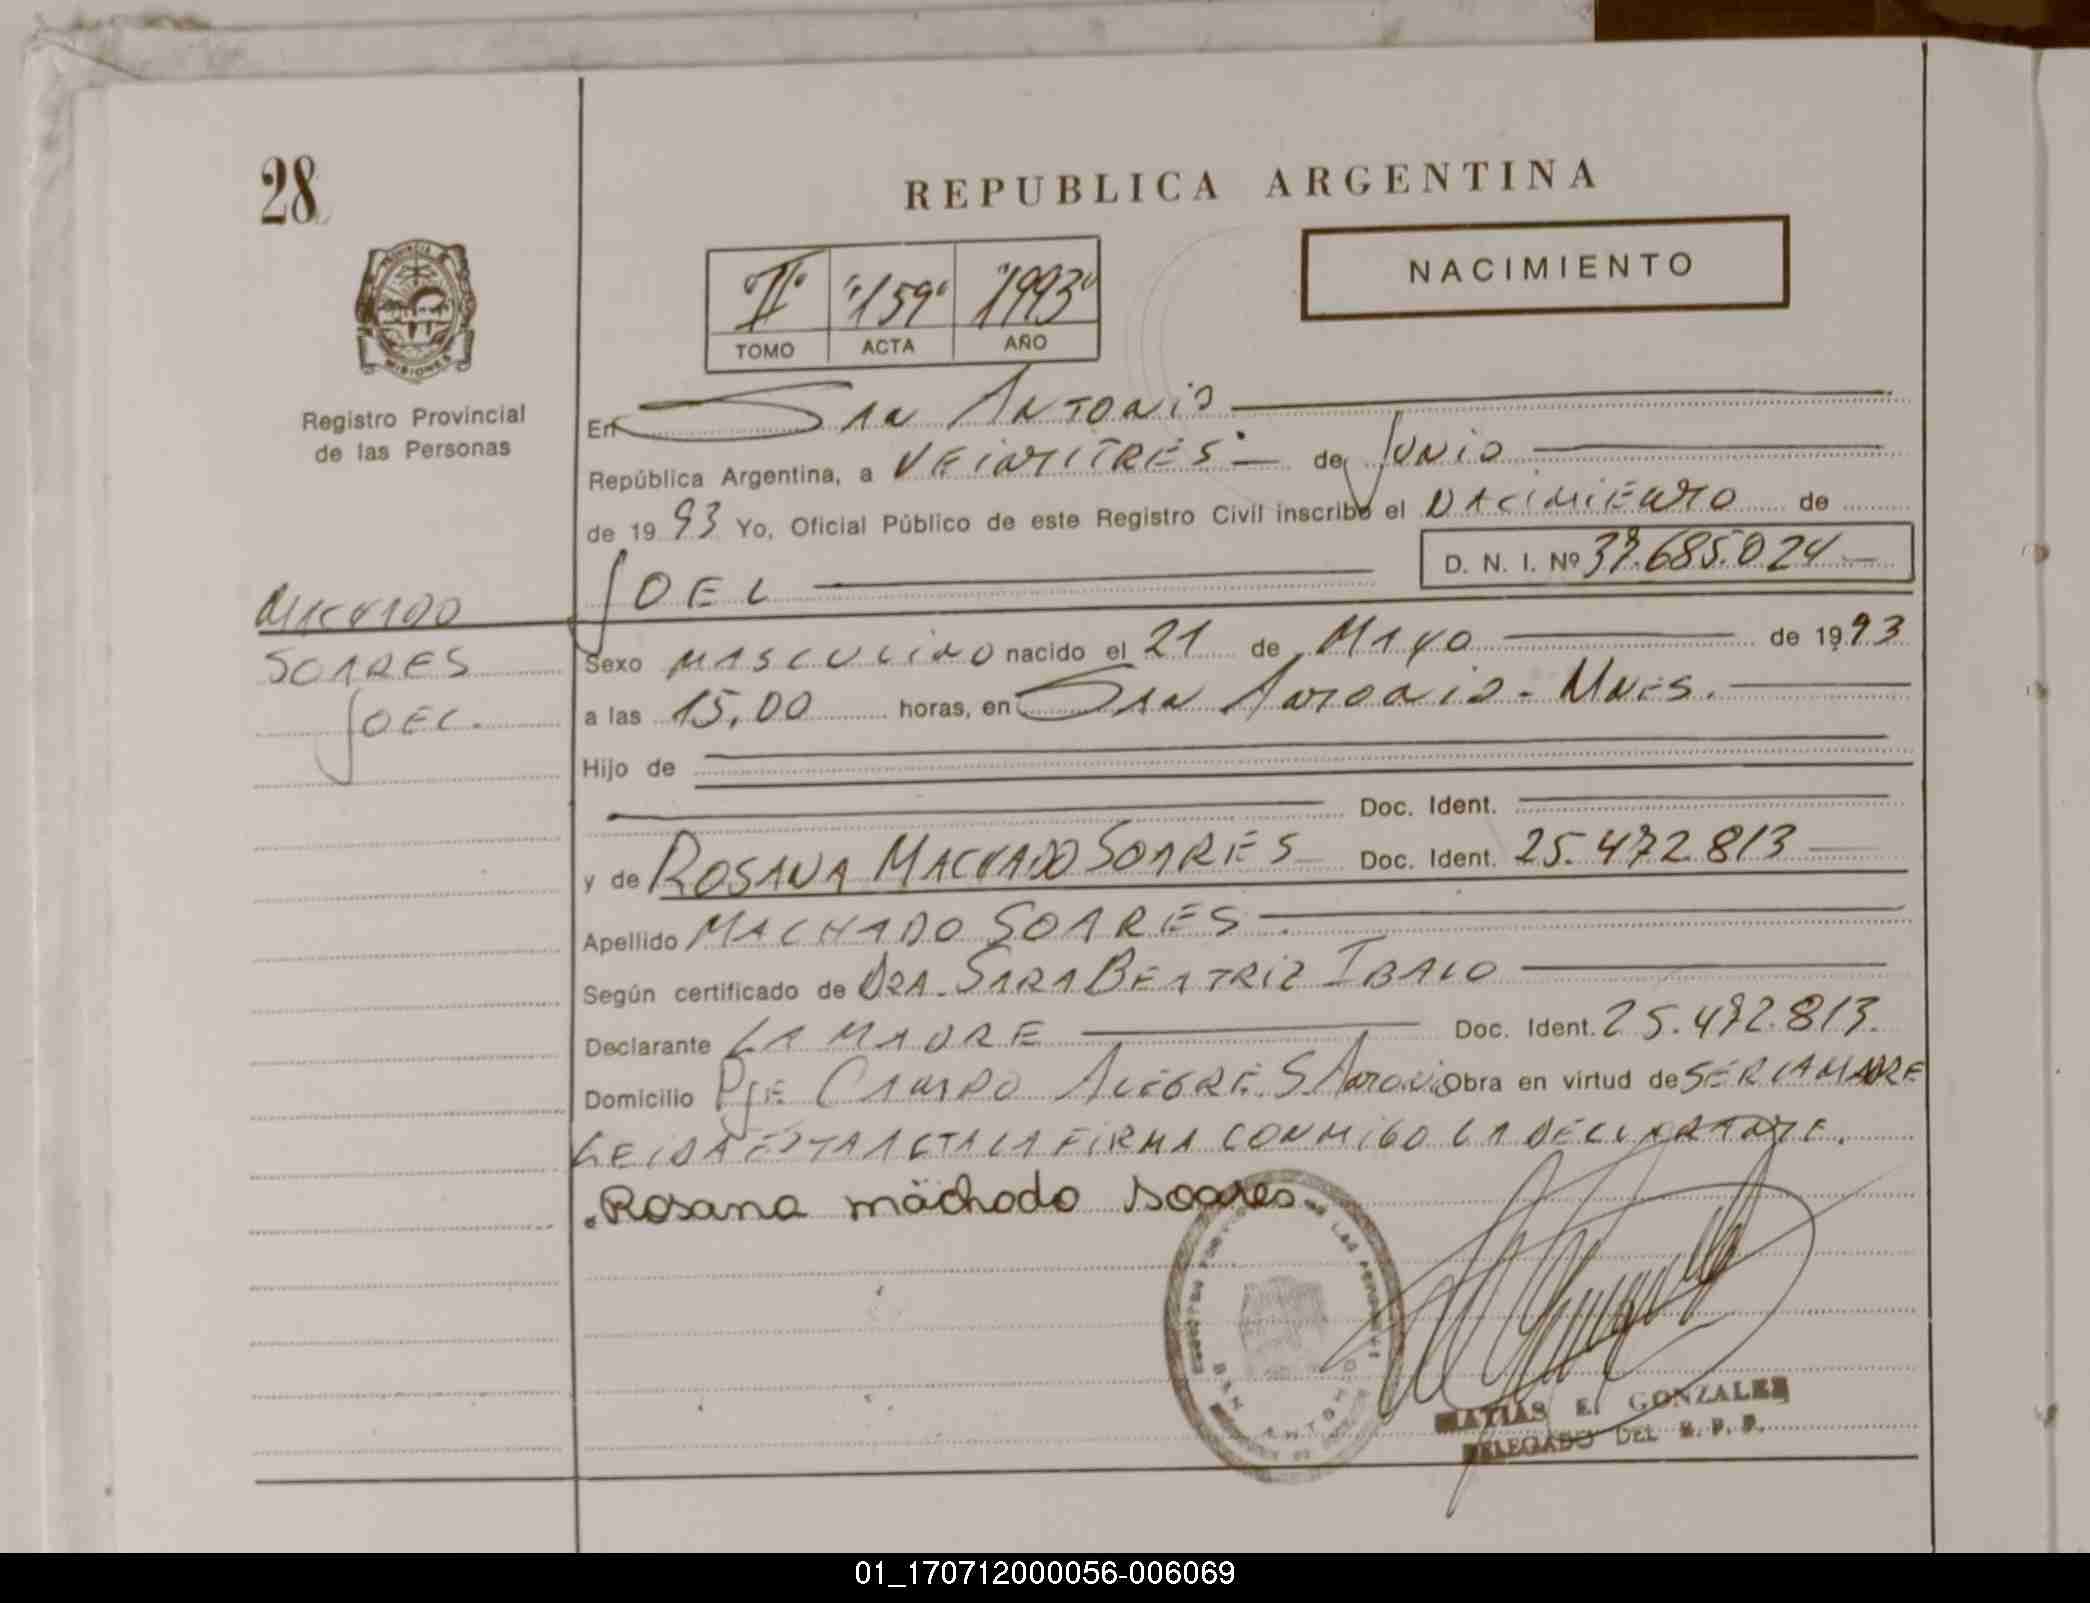 28
REPUBLICA ARGENTINA
NACIMIENTO
"II" "159" "1993"
TOMO ACTA AÑO
PROVINCIA DE
MISIONES
Registro Provincial
de las Personas
En San Antonio
República Argentina, a VEINTITRES - de Junio
de 1993 Yo, Oficial Público de este Registro Civil inscribo el NACIMIENTO de
JOEL D. N. I. Nº 37.685.024
MACHADO
SOARES
JOEL.
Sexo MASCULINO nacido el 21 de MAYO de 1993
a las 15,00 horas, en SAN ANTONIO - MNES.
Hijo de
Doc. Ident.
y de ROSANA MACHADO SOARES Doc. Ident. 25.472.813
Apellido MACHADO SOARES
Según certificado de DRA. SARA BEATRIZ IBALO
Declarante LA MADRE Doc. Ident. 25.472.813.
Domicilio PJE CAMPO ALEGRE S ANTONIO Obra en virtud de SER LA MADRE
LEIDA ESTA ACTA LA FIRMA CONMIGO LA DECLARANTE.
Rosana machado soares
SAN ANTONIO
MATIAS E. GONZALEZ
DELEGADO DEL R. P. P.
01_170712000056-006069